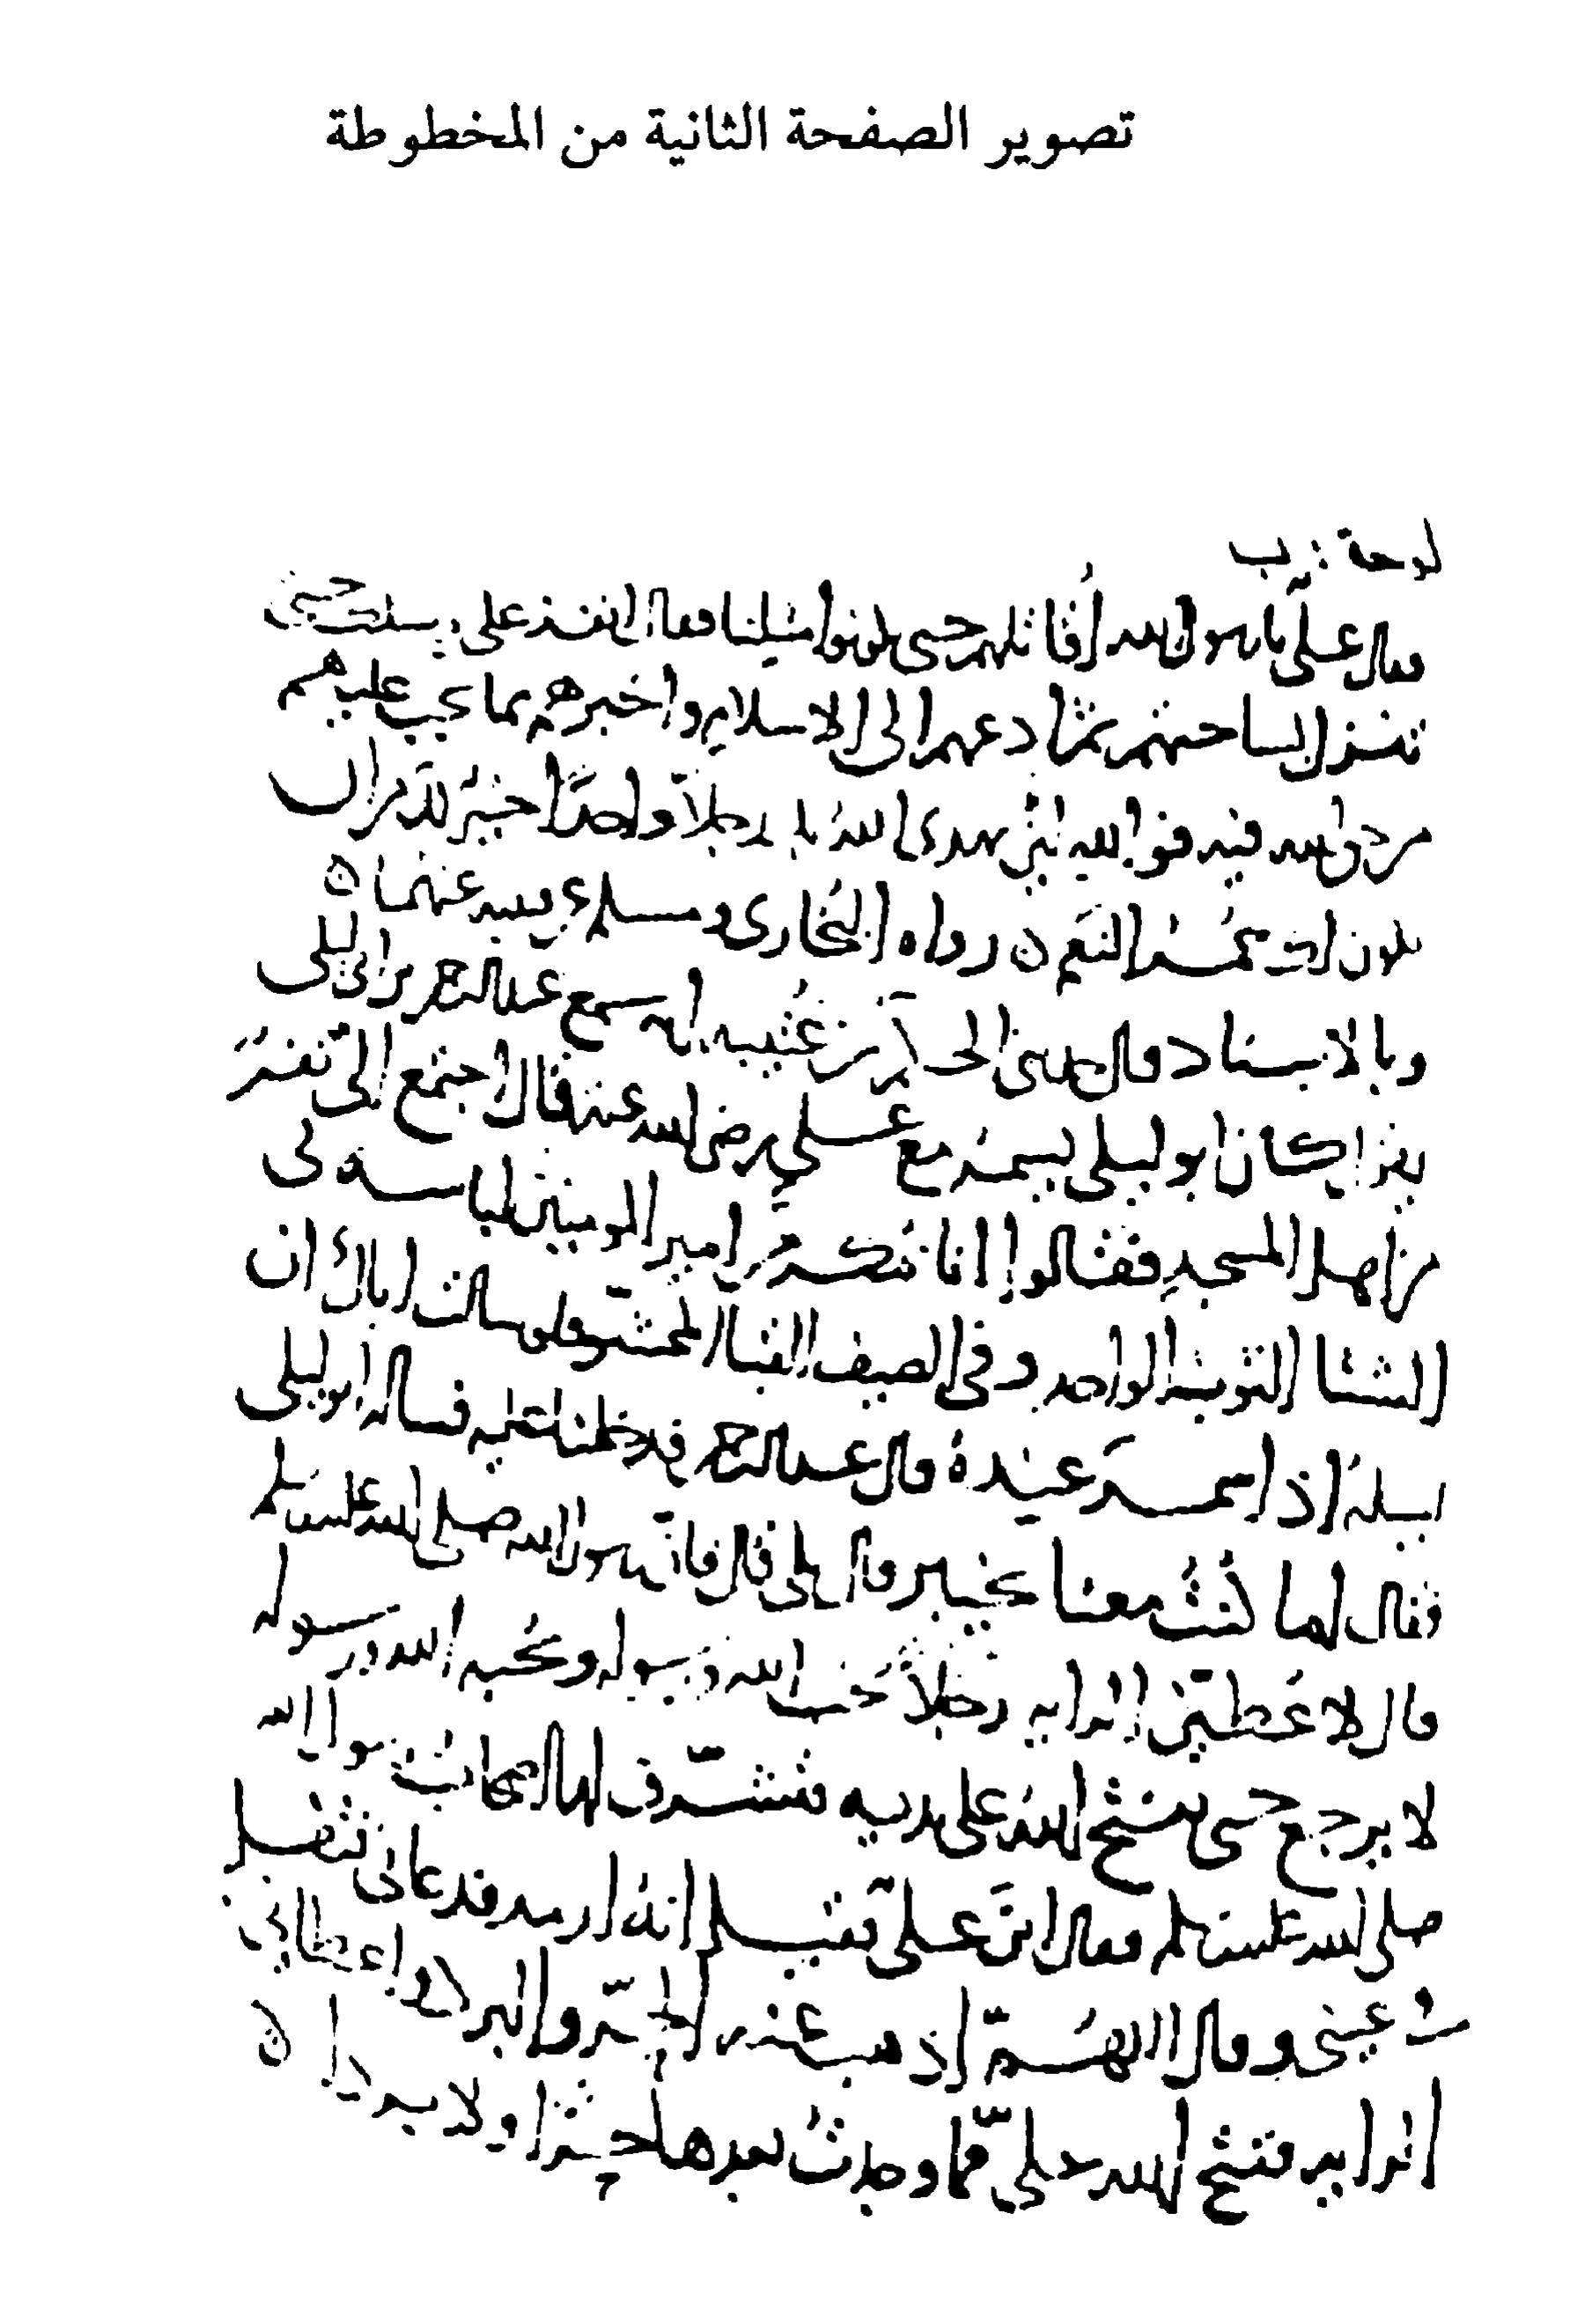 تصوير الصفحة الثانية من المخطوطة
لوحة : ب
فقال علي يا رسول الله أقاتلهم حتى يكونوا مثلنا فقال انفذ على رسلك حتى
تنزل بساحتهم ثم ادعهم الى الاسلام واخبرهم بما يجب عليهم
من حق الله فيه فوالله لئن يهدي الله بك رجلا واحدا خير لك من ان
يكون لك حمر النعم ن رواه البخاري ومسلم عنهما ن
وبالاسناد قال حدثني الحكم بن عتيبة انه سمع عبد الرحمن بن ابي ليلى
يقول كان ابو ليلى يسمر مع علي رضي الله عنه قال اجتمع الي نفر
من اهل المسجد فقالوا انا ننكر من امير المومنين لباسه في
الشتا الثوب الواحد وفي الصيف القبا المحشو فلو سالت اباك ان
يسله اذا سمر عنده قال عبد الرحمن فدخلنا عليه فساله ابو ليلى
فقال له اما كنت معنا بخيبر قال بلى قال فان رسول الله صلى الله عليه وسلم
قال لاعطين الراية رجلا يحب الله ورسوله ويحبه الله ورسوله
لا يرجع حتى يفتح الله على يديه فتشرف لها اصحاب رسول الله
صلى الله عليه وسلم فقال اين علي فقيل انه ارمد فدعاني فتفل
في عيني وقال اللهم اذهب عنه الحر والبرد واعطاني
الراية ففتح الله علي فما وجدت بعدها حرا ولا بردا ن